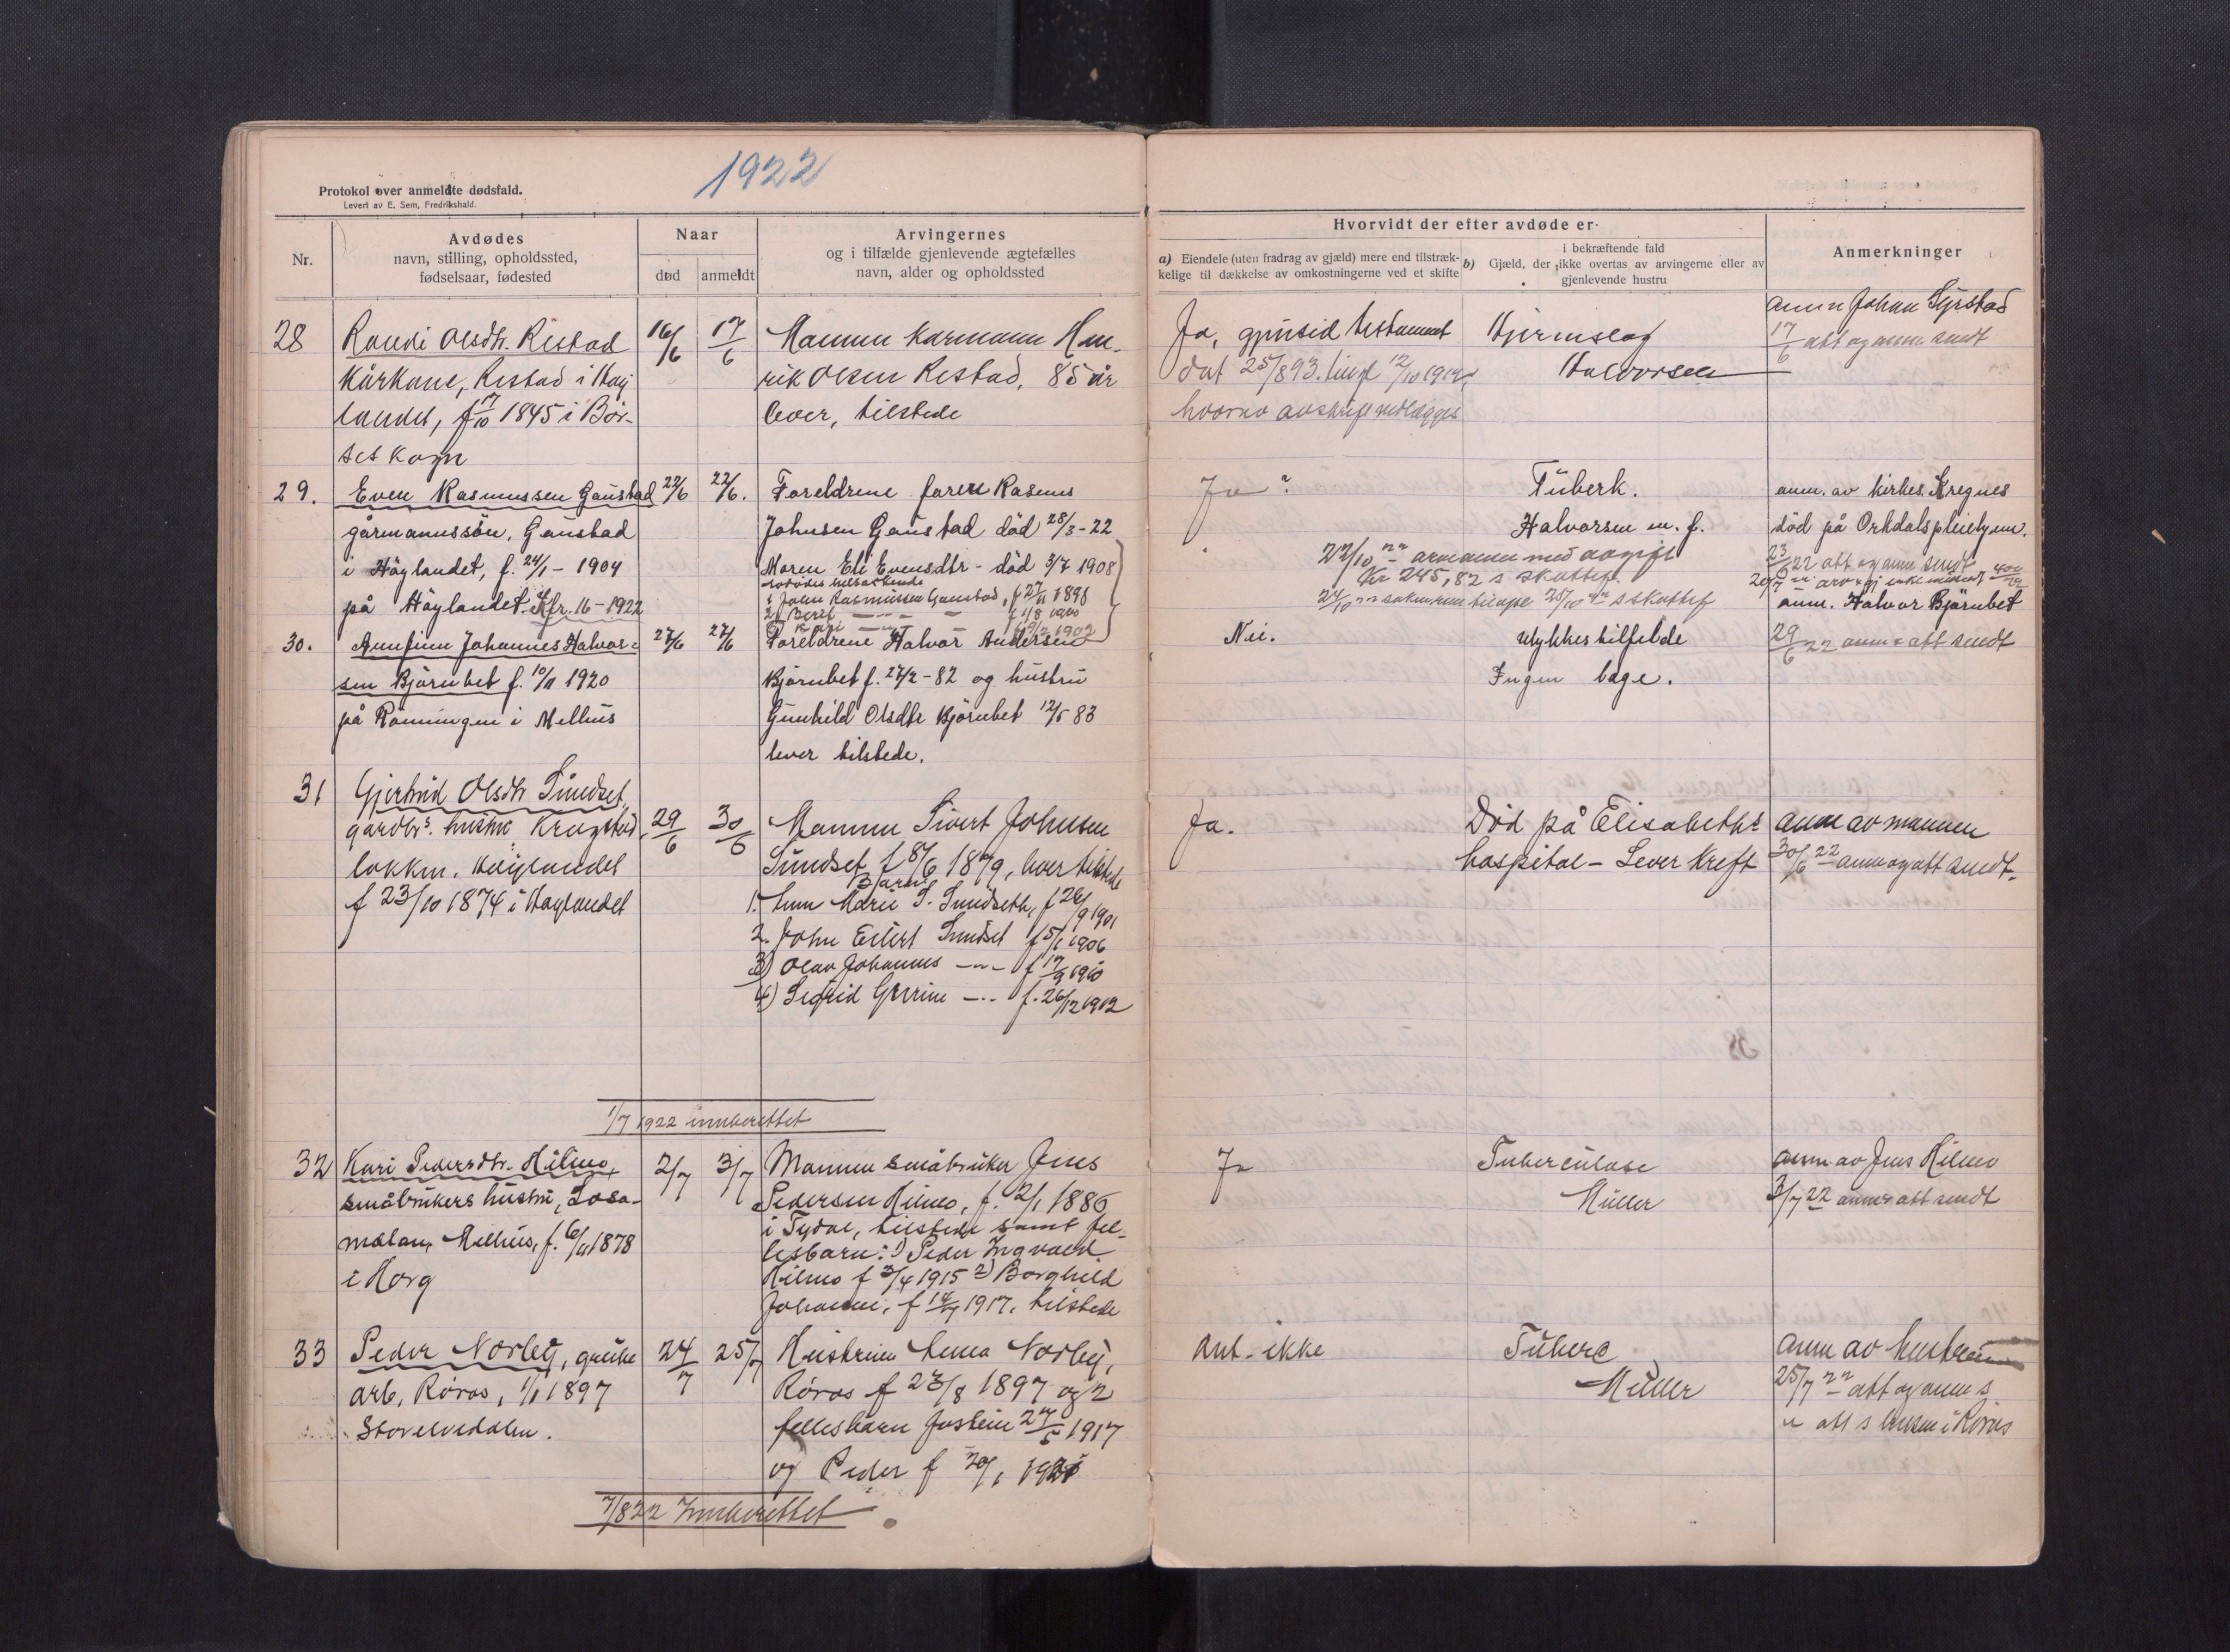 1922
Protokol over anmeldte dødsfald.
Levert av E. Sem, Fredrikshald.
Nr.
Avdødes
navn, stilling, opholdssted,
fødselsaar, fødested
Naar
død
anmeldt
Arvingernes
og i tilfælde gjenlevende ægtefælles
navn, alder og opholdssted
Hvorvidt der efter avdøde er
a) Eiendele (uten fradrag av gjæld) mere end tilstræk-
kelige til dækkelse av omkostningerne ved et skifte
i bekræftende fald
b) Gjæld, der ikke overtas av arvingerne eller av
gjenlevende hustru
Anmerkninger
28
Randi Olsdtr. Ristad
kårkone, Ristad i Høy
landet, f 17/10 1845 i Bør-
set sogn
16/6
17/6
Mannen karmann Hen-
rik Olsen Restad, 85 år
lever, tilstede
Ja, gjensid testament
dat 25/8 93. tingl 12/10 1914,
hvorav avskrift vedlægges
Hjerneslag
Halvorsen
anm Johan Syrstad
17/6 att og anm sendt
29.
Even Rasmussen Gaustad
gårmannssön, Gaustad
i Höylandet, f. 24/1 - 1904
på Höylandet. Kfr. 16-1922
22/6
22/6.
Foreldrene faren Rasmus
Johnsen Gaustad död 28/3-22
Moren Eli Evensdtr - död 3/7 1908
avdödes helsøskende
1 John Rasmussen Gaustad, f 27/11 1898
2) Berit - - - f 1/8 1900
3) Kari - - - 1902
Ja
Tüberk.
Halvorsen m. f.
22/10 22 arvanm med avgift
Kr 245,82 s skattef.
24/10 22 25/10 22 s skattef
anm. av kirkes. Kregnes
död på Orkdals pleiehjem.
23/6 22 att og anm sendt
30.
Arnfinn Johannes Halvor-
sen Björnbet f. 10/11 1920
på Rönningen i Melhus
27/6
27/6
Foreldrene Halvor Andersen
Björnbet f. 27/2-82 og hustru
Gunhild Olsdtr Björnbet 12/5 83
lever tilstede.
Nei.
Ulykkestilfelde
Ingen læge.
anm. Halvor Björnbet
29/6 22 anm & att sendt
31
Gjertrud Olsdtr Sundset
gardbr.s hustru Krogstad
lokkm. Høylandet
f 23/10 1874 i Høylandet
29/6
30/6
Mannen Sivert Johnsen
Sundset f 8/6 1879, lever tilstede
Barn
1. Anne Marie S. Sundseth, f 26/9 1901
2. John Eilert Sundset f 5/1 1906
3) Olav Johannes -"- f 17/9 1910
4) Sigrid -"- f. 26/12 1912
Ja.
Död på Elisabeths
hospital - Lever kreft
anm av mannen
30/6 22 anm og att sendt.
1/7 1922 innberettet
32
Kari Pedersdtr. Hilmo,
småbrukers hustru, Losa-
mælan, Melhus, f. 6/11 1878
i Horg
2/7
3/7
Mannen småbruker Jens
Pedersen Hilmo, f. 2/1 1886
i Tydal, tilstede samt fel-
lesbarn: 1) Peder Ingvald
Hilmo f 3/4 1915 2) Borghild
Johanne, f 14/7 1917. tilstede
Ja
Tuberculose
Müller
anm av Jens Hilmo
3/7 22 anm & att sendt
33
Peder Norbey, grube
arb, Röros, 1/1 1897
Storelvedalen.
24/7
25/7
Hustruen Anna Norbey,
Röros f 23/8 1897 og 2
fellesbarn Jostein 27/5 1917
og Peder f 20/1 1921
Ant. ikke
Tuberc
Müller
anm av hustruen
25/7 22 att og anm s
att s lensm i Röros
7/8 22 Innberettet